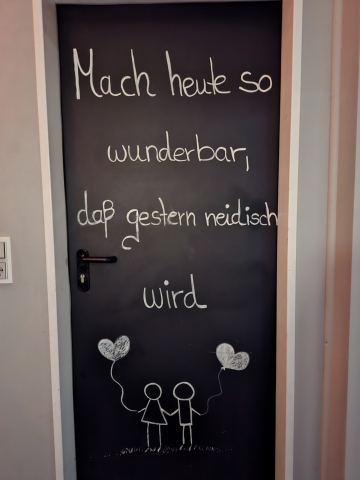 Mach heute so
wunderbar,
daß gestern neidisch
wird